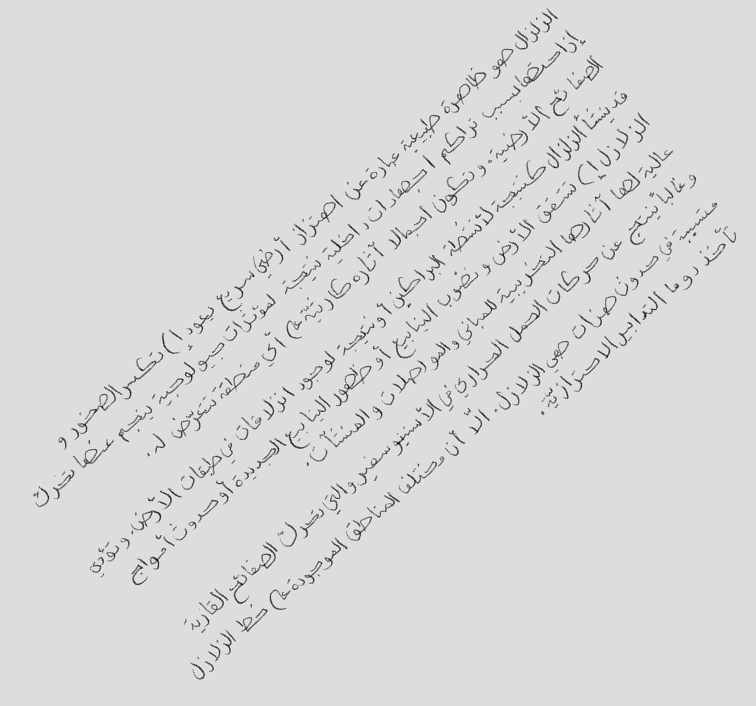 الزلزال هو ظاهرة طبيعية عبارة عن اهتزاز أرضي سريع يعود إلى تكسر الصخور و
إزاحتها بسبب تراكم اجهادات داخلية نتيجة لمؤثرات جيولوجية ينجم عنها تحرك
الصفائح الأرضية. وتكون اجمالا آثاره كارثية على أي منطقة تتعرّض له.
قد ينشأ الزلزال كنتيجة لأنشطة البراكين أو نتيجة لوجود انزلاقات في طبقات الأرض. وتؤدي
الزلازل إلى تشقق الأرض و نضوب الينابيع أو ظهور الينابيع الجديدة أو حدوث أمواج
عالية لها آثارها التخريبية للمباني والمواصلات و المنشآت.
وغالبا ينتج عن حركات الحمل الحراري في الأستينوسفير والتي تحرك الصفائح القارية
متسببة في حدوث هزات هي الزلازل. الّا أن مختلف المناطق الموجودة على خط الزلازل
تأخذ دوما التدابير الاحترازيّة.